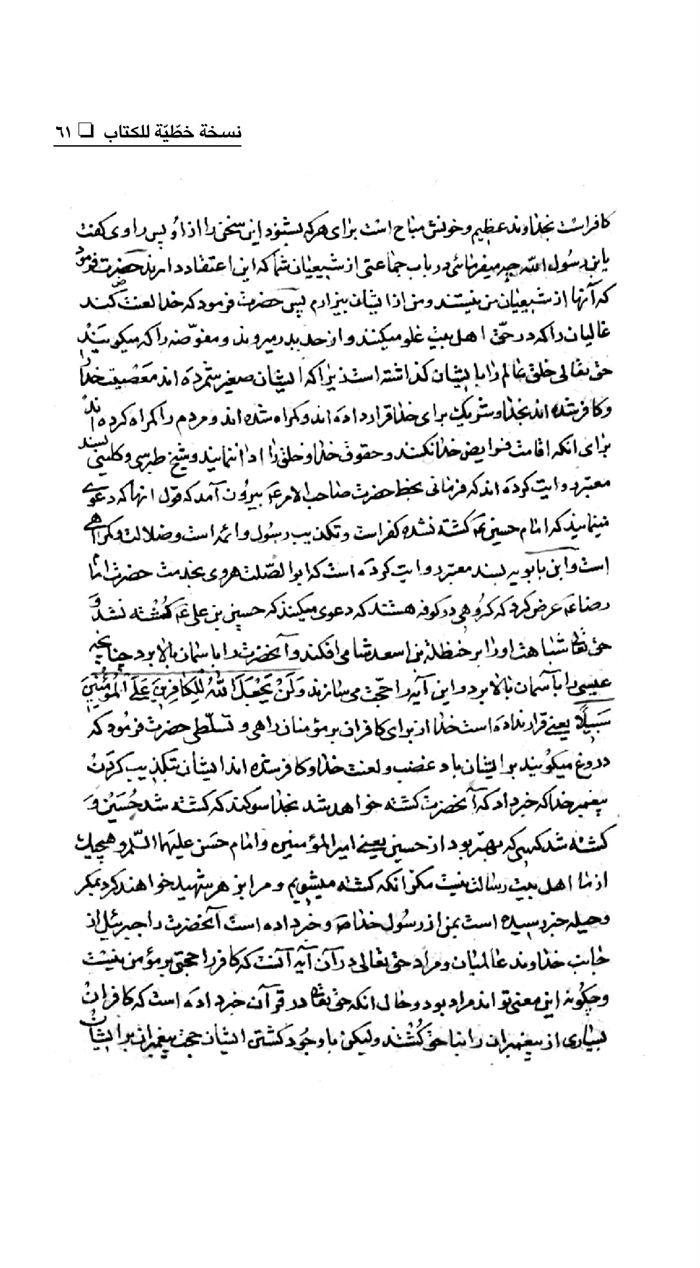 نسخة خطّيّة للكتاب ❏ ٦١
کافر است بخداوند عظیم و خونش مباح است برای هرکه بشنود این سخن را از او پس راوی گفت
یابن رسول الله چه میفرمائی در باب جماعتی از شیعیان شما که این اعتقاد دارند حضرت فرمود
که آنها از شیعیان من نیستند و من از ایشان بیزارم پس حضرت فرمود که خدا لعنت کند
غالیان را که در حقّ اهل بیت غلو میکنند و از حد بدر میروند و مفوّضه را که میگویند
حق تعالی خلق عالم را با ایشان گذاشته است زیرا که ایشان صغیر شمرده اند معصیت خدا را
و کافر شده اند بخدا و شریک برای خدا قرار داده اند و گمراه شده اند و مردم را گمراه کرده اند
برای انکه اقامت فرایض خدا نکنند و حقوق خدا و خلق را ادا ننمایند و شیخ طبرسی و کلینی بسند
معتبر روایت کرده اند که فرمانی بخط حضرت صاحب الامر عم بیرون آمد که قول انها که دعوی
مینمایند که امام حسین عم کشته نشده کفر است و تکذیب رسول و ائمه است و ضلالت و گمراهی
است و ابن بابویه بسند معتبر روایت کرده است که ابوالصّلت هروی بخدمت حضرت امام
رضا عم عرض کرد که گروهی در کوفه هستند که دعوی میکنند که حسین بن علی عم کشته نشد و
حق تعالی شباهت او را بر حنظلة بن اسعد شامی افکند و آنحضرت را باسمان بالا برد چنانچه
عیسی را بآسمان بالا برد و این آیه را حجّت می سازند وَلَنْ يَجْعَلَ اللهُ لِلْكافِرينَ عَلَى الْمُؤْمِنينَ
سَبيلًا یعنی قرار نداده است خدا از برای کافران بر مؤمنان راهی و تسلّطی حضرت فرمود که
دروغ میگویند بر ایشان باد غضب و لعنت خدا و کافر شده اند ایشان تکذیب کردن
پیغمبر خدا که خبر داد که آنحضرت کشته خواهد شد بخدا سوگند که کشته شد حُسَیْن و
کشته شد کسی که بهتر بود از حسین یعنی امیرالمؤمنین و امام حسن علیهما السّلم و هیچیک
از ما اهل بیت رسالت نیست مگر انکه کشته میشویم و مرا بزهر شهید خواهند کرد بمکر
و حیله خبر رسیده است بمن از رسول خدا ص و خبر داده است آنحضرت را جبرئیل از
جانب خداوند عالمیان و مراد حق تعالی در آن آیه آنست که کافر را حجتی بر مؤمن نیست
و چگونه این معنی تواند مراد بود و حال انکه حق تعا در قرآن خبر داده است که کافران
بسیاری از پیغمبران را بناحق کُشتند ولیکن با وجود کشتن ایشان حجت پیغمبران بر ایشان